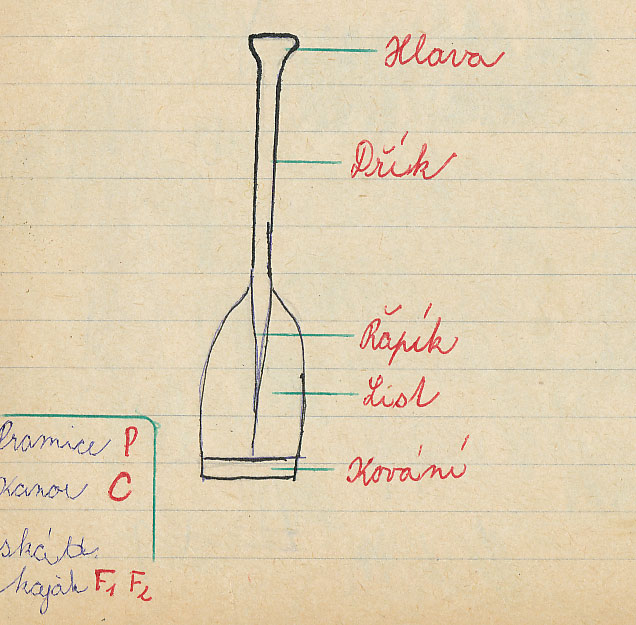 Hlava
Dřík
Řapík
List
Kování
Pramice P
Kanoe C
kajak F1 F2